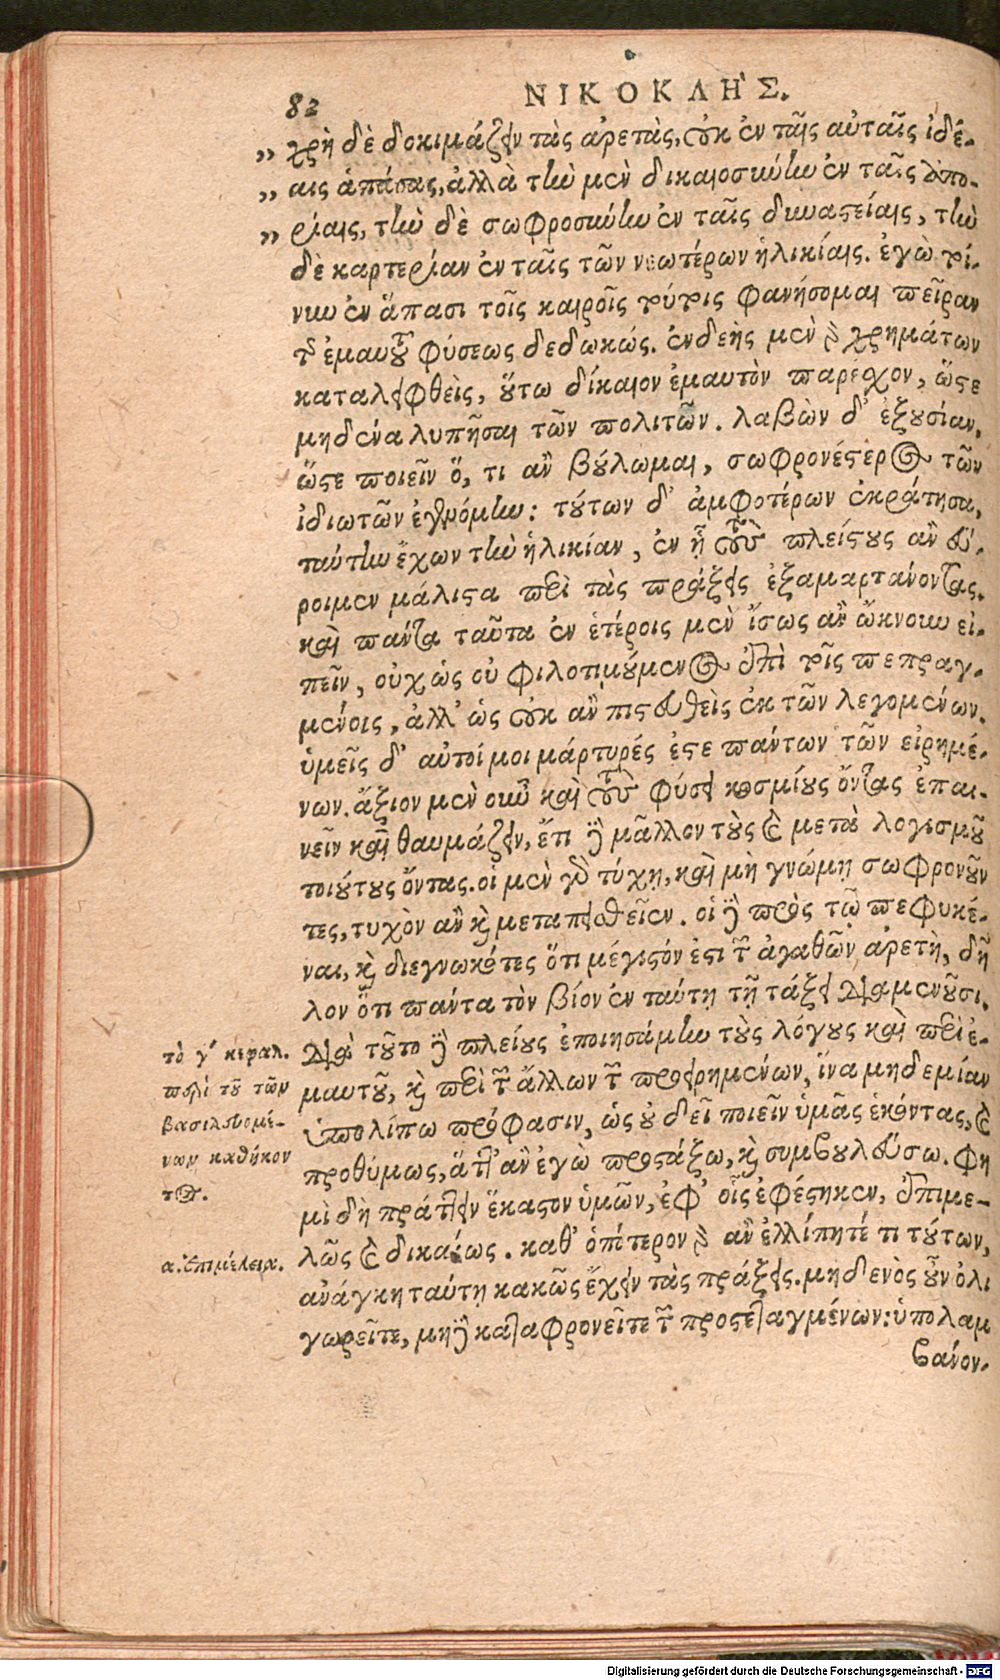 82
ΝΙΚΟΚΛΗΣ.
„ χρὴ δὲ δοκιμάζειν τὰς ἀρετὰς, οὐκ ἐν ταῖς αὐταῖς ἰδέ-
„ αις ἁπάσας, ἀλλὰ τὴν μὲν δικαιοσύνην ἐν ταῖς ἀπο-
„ ρίαις, τὴν δὲ σωφροσύνην ἐν ταῖς δυναστείαις, τὴν
δὲ καρτερίαν ἐν ταῖς τῶν νεωτέρων ἡλικίαις. ἐγὼ τοί-
νυν ἐν ἅπασι τοῖς καιροῖς τούτοις φανήσομαι πεῖραν
τῆς ἐμαυτοῦ φύσεως δεδωκώς. ἐνδεὴς μὲν γε χρημάτων
καταλειφθεὶς, οὕτω δίκαιον ἐμαυτὸν παρέσχον, ὥστε
μηδένα λυπῆσαι τῶν πολιτῶν. λαβὼν δ' ἐξουσίαν,
ὥστε ποιεῖν ὅ, τι ἂν βούλωμαι, σωφρονέστερος τῶν
ἰδιωτῶν ἐγενόμην: τούτων δ' ἀμφοτέρων ἐκράτησα,
ταύτην ἔχων τὴν ἡλικίαν, ἐν ᾗ τοὺς πλείστους ἂν εὕ-
ροιμεν μάλιστα περὶ τὰς πράξεις ἐξαμαρτάνοντας.
καὶ πάντα ταῦτα ἐν ἑτέροις μὲν ἴσως ἂν ὤκνουν εἰ-
πεῖν, οὐχ ὡς οὐ φιλοτιμούμενος ἐπὶ τοῖς πεπραγ-
μένοις, ἀλλ' ὡς οὐκ ἂν πιστευθεὶς ἐκ τῶν λεγομένων.
ὑμεῖς δ' αὐτοί μοι μάρτυρές ἐστε πάντων τῶν εἰρημέ-
νων. ἄξιον μὲν οὖν καὶ τοὺς φύσει κοσμίους ὄντας ἐπαι-
νεῖν καὶ θαυμάζειν, ἔτι δὲ μᾶλλον τοὺς καὶ μετὰ λογισμοῦ
τοιούτους ὄντας. οἱ μὲν γὰρ τύχῃ, καὶ μὴ γνώμῃ σωφρονοῦν
τες, τυχὸν ἂν καὶ μεταπεισθεῖεν. οἱ δὲ πρὸς τῷ πεφυκέ-
ναι, καὶ διεγνωκότες ὅτι μέγιστόν ἐστι τῶν ἀγαθῶν ἀρετὴ, δῆ
λον ὅτι πάντα τὸν βίον ἐν ταύτῃ τῇ τάξει διαμενοῦσι.
διὰ τοῦτο δὲ πλείους ἐποιησάμην τοὺς λόγους καὶ περὶ ἐ-
μαυτοῦ, καὶ περὶ τῶν ἄλλων τῶν προειρημένων, ἵνα μηδεμίαν
ὑπολίπω πρόφασιν, ὡς οὐ δεῖ ποιεῖν ὑμᾶς ἑκόντας, καὶ
προθύμως, ἅττ' ἂν ἐγὼ προστάξω, καὶ συμβουλεύσω. φη
μὶ δὴ πράττειν ἕκαστον ὑμῶν, ἐφ' οἷς ἐφέστηκεν, ἐπιμε-
λῶς καὶ δικαίως. καθ' ὁπότερον γὰρ ἂν ἐλλίπητέ τι τούτων,
ἀνάγκη ταύτῃ κακῶς ἔχειν τὰς πράξεις. μηδενὸς οὖν ὀλι
γωρεῖτε, μηδὲ καταφρονεῖτε τῶν προστεταγμένων: ὑπολαμ
βάνον-
τὸ γ' κεφαλ.
περὶ τοῦ τῶν
βασιλευομέ-
νων καθήκον
τος.
α. Ἐπιμέλεια.
Digitalisierung gefördert durch die Deutsche Forschungsgemeinschaft - DFG